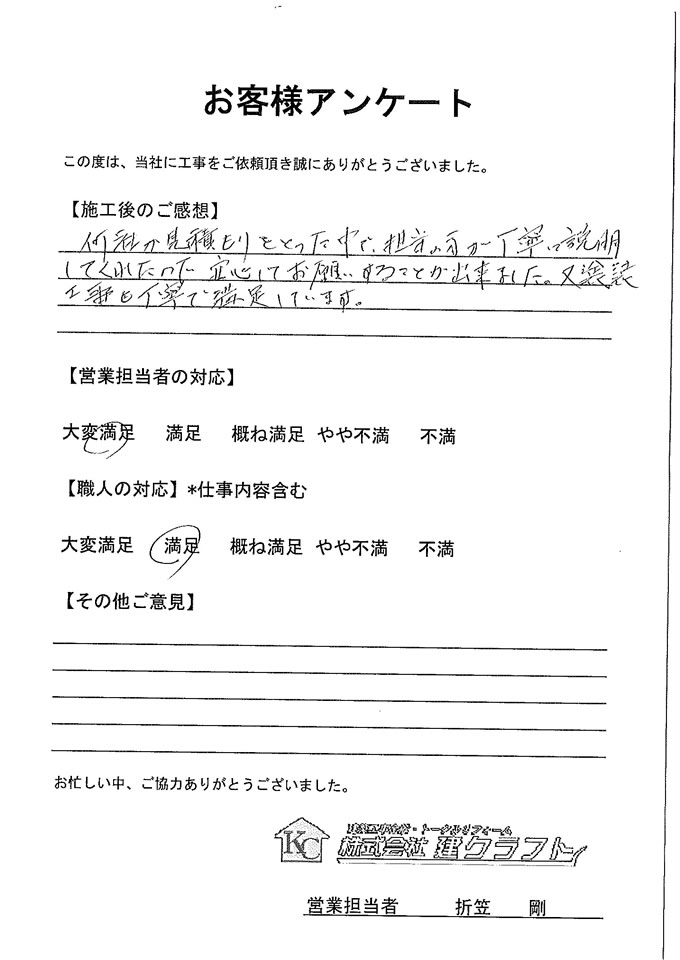 お客様アンケート
この度は、当社に工事をご依頼頂き誠にありがとうございました。
【施工後のご感想】
何社か見積もりをとった中で、担当の方が丁寧に説明
してくれたので安心してお願いすることが出来ました。又塗装
工事も丁寧で満足しています。
【営業担当者の対応】
大変満足 満足 概ね満足 やや不満 不満
【職人の対応】*仕事内容含む
大変満足 満足 概ね満足 やや不満 不満
【その他ご意見】
お忙しい中、ご協力ありがとうございました。
KC
株式会社 建クラフト
営業担当者 折笠 剛